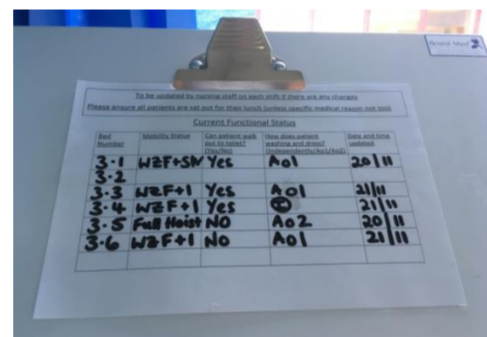 To be updated by nursing staff on each shift if there are any changes
Please ensure all patients are sat out for their lunch (unless specific medical reason not too)
Current Functional Status
Bed Number Mobility Status Can patient walk out to toilet? (Yes/No) How does patient washing and dress? (Independently/Ao1/Ao2) Date and time updated
3.1 WZF+SN Yes Ao1 20/11
3.2
3.3 WZF+1 Yes Ao1 21/11
3.4 WZF+1 Yes I 21/11
3.5 Full Hoist NO Ao2 20/11
3.6 WZF+1 NO Ao1 21/11